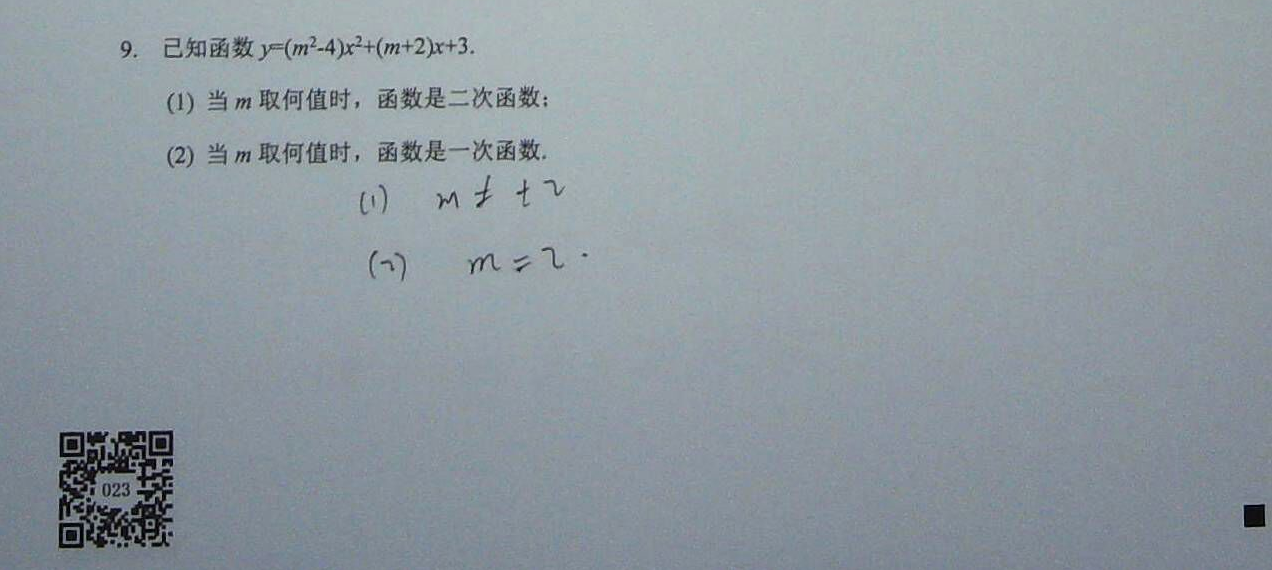 9. 已知函数 y=(m²-4)x²+(m+2)x+3.
(1) 当 m 取何值时，函数是二次函数；
(2) 当 m 取何值时，函数是一次函数.
(1) m ≠ ±2
(2) m = 2.
023